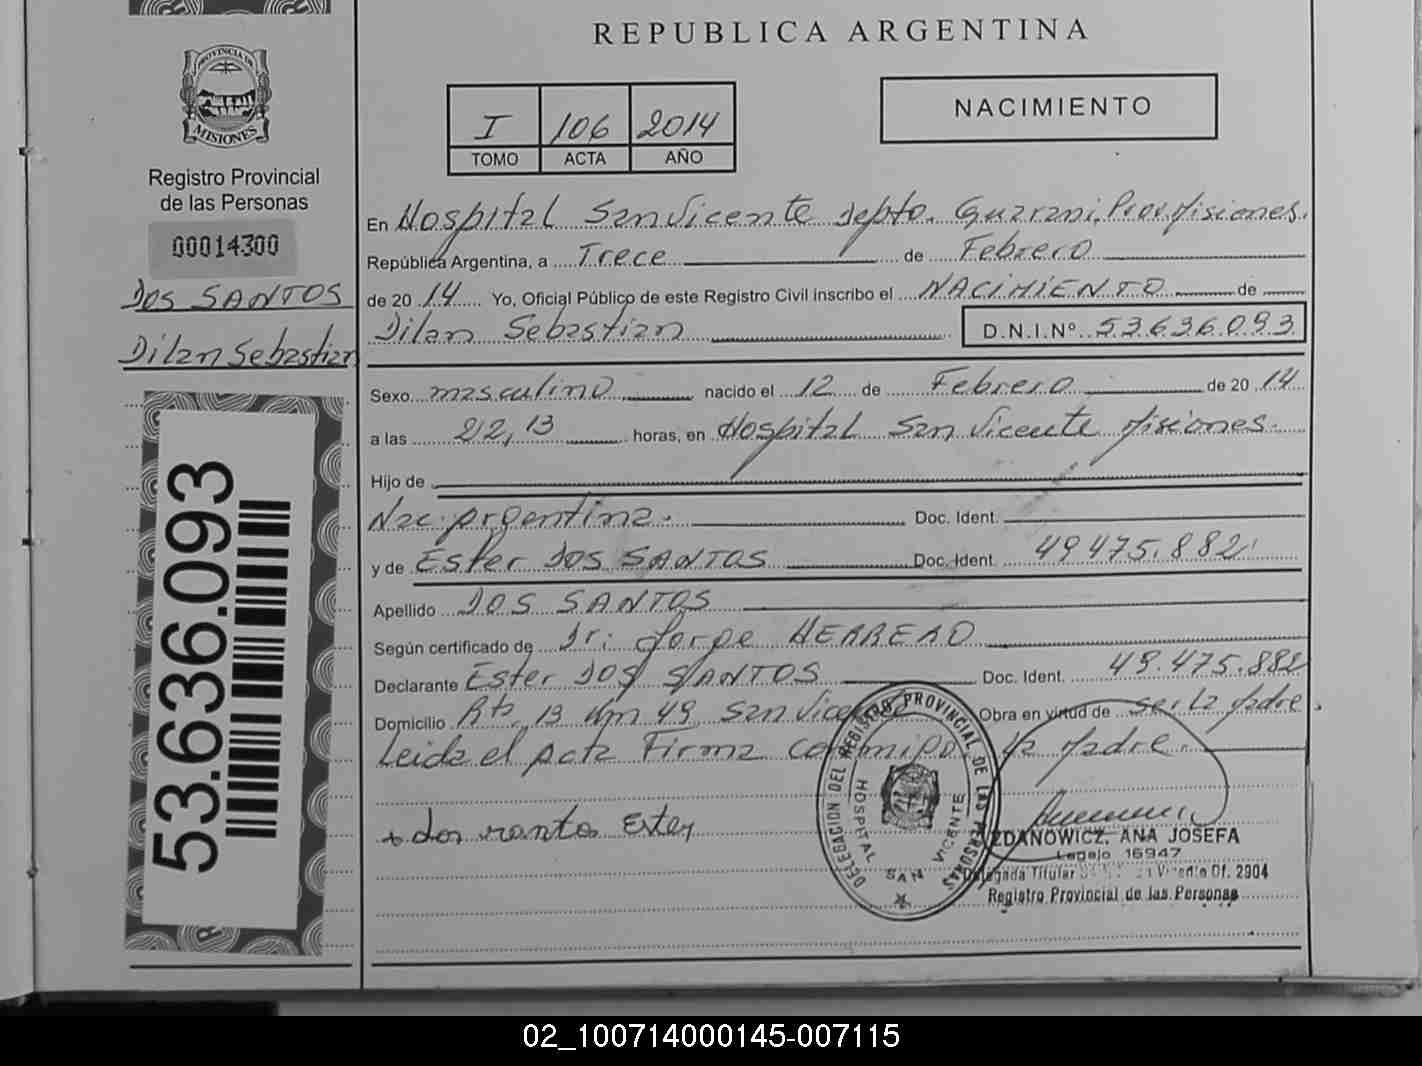 PROVINCIA DE
MISIONES
Registro Provincial
de las Personas
00014300
DOS SANTOS
Dilan Sebastian
53.636.093
REPUBLICA ARGENTINA
I 106 2014
TOMO ACTA AÑO
NACIMIENTO
En Hospital San Vicente Depto. Guarani. Prov. Misiones.
República Argentina, a Trece de Febrero
de 2014 Yo, Oficial Público de este Registro Civil inscribo el NACIMIENTO de
Dilan Sebastian D.N.I.Nº 53.636.093
Sexo masculino nacido el 12 de Febrero de 2014
a las 22,13 horas, en Hospital San Vicente Misiones.
Hijo de
Nac. Argentina. Doc. Ident.
y de Ester DOS SANTOS Doc. Ident. 49.475.882
Apellido DOS SANTOS
Según certificado de Dr. Jorge HERRERO
Declarante Ester DOS SANTOS Doc. Ident. 49.475.882
Domicilio Rta. 13 km 49 San Vicente Obra en virtud de ser la Madre
Leida el Acta Firma conmigo la Madre.
+ dos santos Ester
DELEGACION DEL REGISTRO PROVINCIAL DE LAS PERSONAS
HOSPITAL SAN VICENTE
ZDANOWICZ, ANA JOSEFA
Legajo 16947
Delegada Titular Vicente Of. 2904
Registro Provincial de las Personas
02_100714000145-007115